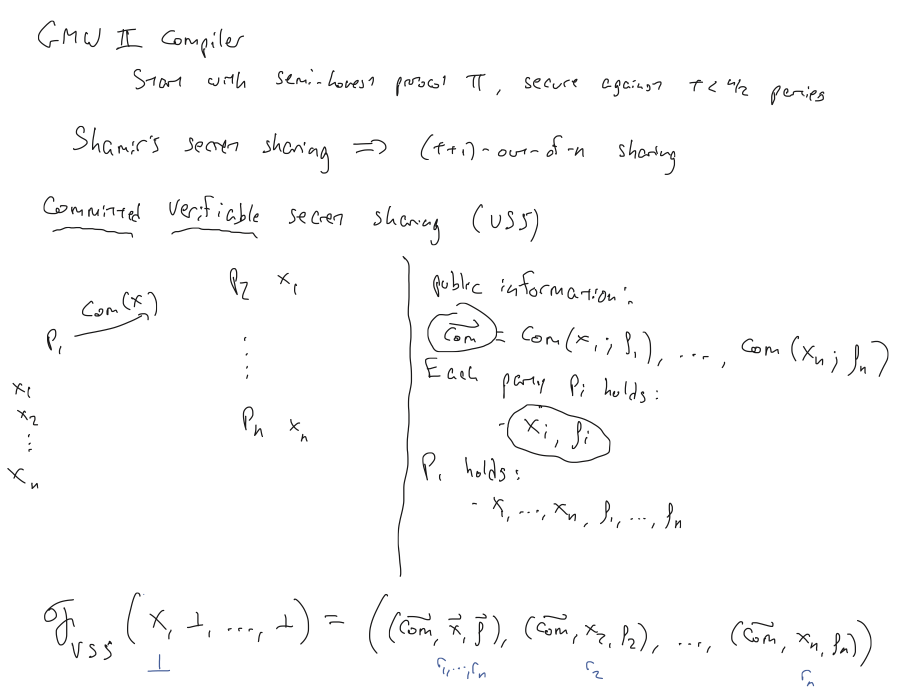 GMW II Compiler
Start with semi-honest protocol π, secure against t < n/2 parties
Shamir's secret sharing ⇒ (t+1)-out-of-n sharing
Committed verifiable secret sharing (VSS)
P₂ x₁
Com(x)
P₁
⋮
x₁
x₂
⋮
xₙ
Pₙ xₙ
public information:
C⃗om = Com(x₁; ρ₁), ..., Com(xₙ; ρₙ)
Each party Pᵢ holds:
- xᵢ, ρᵢ
P₁ holds:
- x₁, ..., xₙ, ρ₁, ..., ρₙ
ℱ_VSS (x, ⊥, ..., ⊥) = ((C⃗om, x⃗, ρ⃗), (C⃗om, x₂, ρ₂), ..., (C⃗om, xₙ, ρₙ))
⊥ r₁, ..., rₙ r₂ rₙ